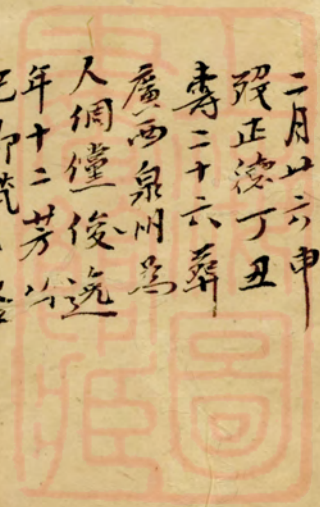 二月廿六申
歿正德丁丑
壽二十六葬
廣西泉州爲
人倜儻俊逸
年十二芳
上海圖
書館藏